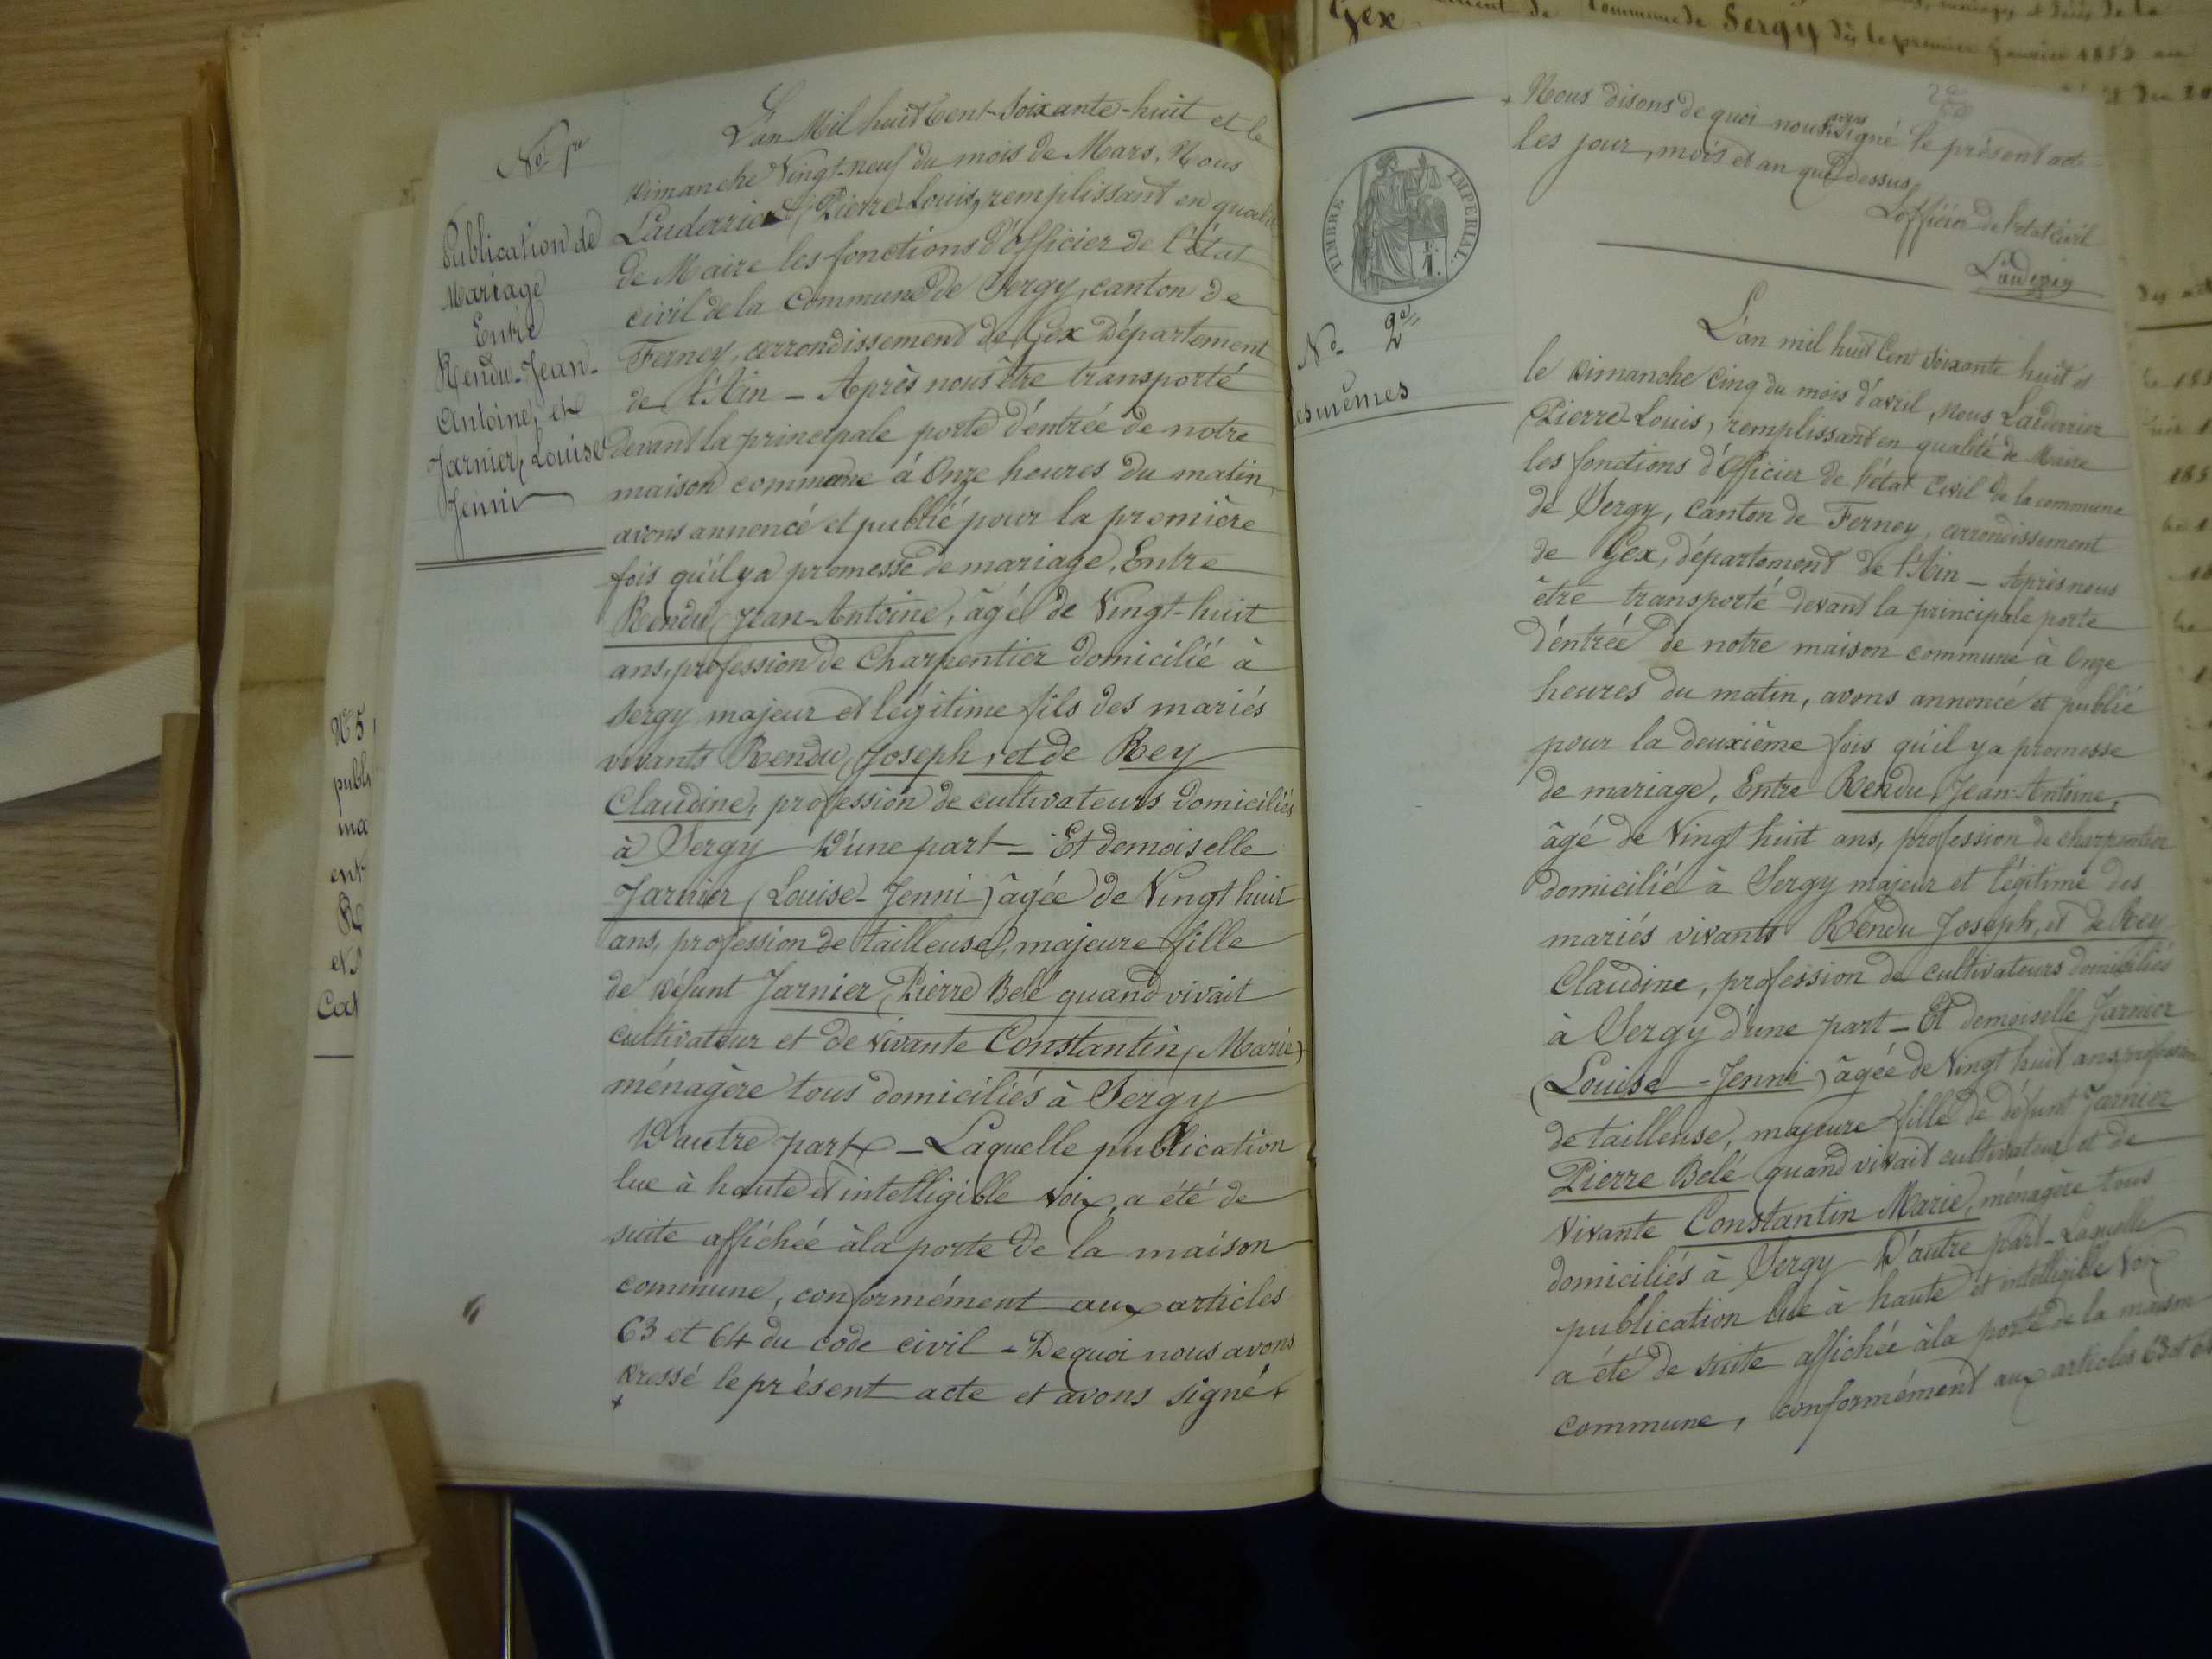 No 1re
Publication de
Mariage
Entre
Rendu-Jean-
Antoine, et
Jarnier, Louise
Jenni
L'an Mil huit Cent-Soixante-huit et le
Dimanche Vingt-neuf du mois de Mars, Nous
Laiderrier (Pierre Louis, remplissant en qualité
de Maire les fonctions d'Officier de l'état
civil de la Commune de Sergy, canton de
Ferney, arrondissement de Gex Département
de l'Ain – Après nous être transporté
devant la principale porte d'entrée de notre
maison commune à Onze heures du matin
avons annoncé et publié pour la première
fois qu'il y a promesse de mariage, Entre
Rendu (Jean-Antoine, âgé de Vingt-huit
ans, profession de Charpentier domicilié à
Sergy majeur et légitime fils des mariés
vivants Rendu, Joseph, et de Rey
Claudine, profession de cultivateurs domiciliés
à Sergy D'une part – Et demoiselle
Jarnier (Louise-Jenni) âgée de Vingt huit
ans, profession de tailleuse, majeure fille
de défunt Jarnier, Pierre Belé quand vivait
cultivateur et de vivante Constantin, (Marie)
ménagère tous domiciliés à Sergy
D'autre part – Laquelle publication
lue à haute et intelligible voix, a été de
suite affichée à la porte de la maison
commune, conformément aux articles
63 et 64 du code civil – De quoi nous avons
dressé le présent acte et avons signé +
+
N 5
publ
ma
ent
R
et
TIMBRE IMPERIAL.
No 2e
Les mêmes
+ Nous disons de quoi nous avons signé le présent acte
les jour, mois et an que dessus,
L'officier de l'état Civil
L'an mil huit Cent soixante huit et
le dimanche Cinq du mois d'avril, nous Laiderrier
(Pierre-Louis, remplissant en qualité de Maire
les fonctions d'Officier de l'état Civil de la commune
de Sergy, Canton de Ferney, arrondissement
de Gex, département de l'Ain – Après nous
être transporté devant la principale porte
d'entrée de notre maison commune à Onze
heures du matin, avons annoncé et publié
pour la deuxième fois qu'il y a promesse
de mariage, Entre Rendu, Jean-Antoine,
âgé de Vingt huit ans, profession de charpentier
domicilié à Sergy majeur et légitime des
mariés vivants Rendu Joseph, et de Rey
Claudine, profession de cultivateurs domiciliés
à Sergy d'une part – Et demoiselle Jarnier
(Louise-Jenni) âgée de Vingt huit ans, profession
de tailleuse, majeure fille de défunt Jarnier
Pierre Belé quand vivait cultivateur et de
vivante Constantin Marie, ménagère tous
domiciliés à Sergy D'autre part – Laquelle
publication lue à haute et intelligible voix
a été de suite affichée à la porte de la maison
commune, conformément aux articles 63 et 64
Gex
Commune de Sergy dès le premier Janvier 1853 au